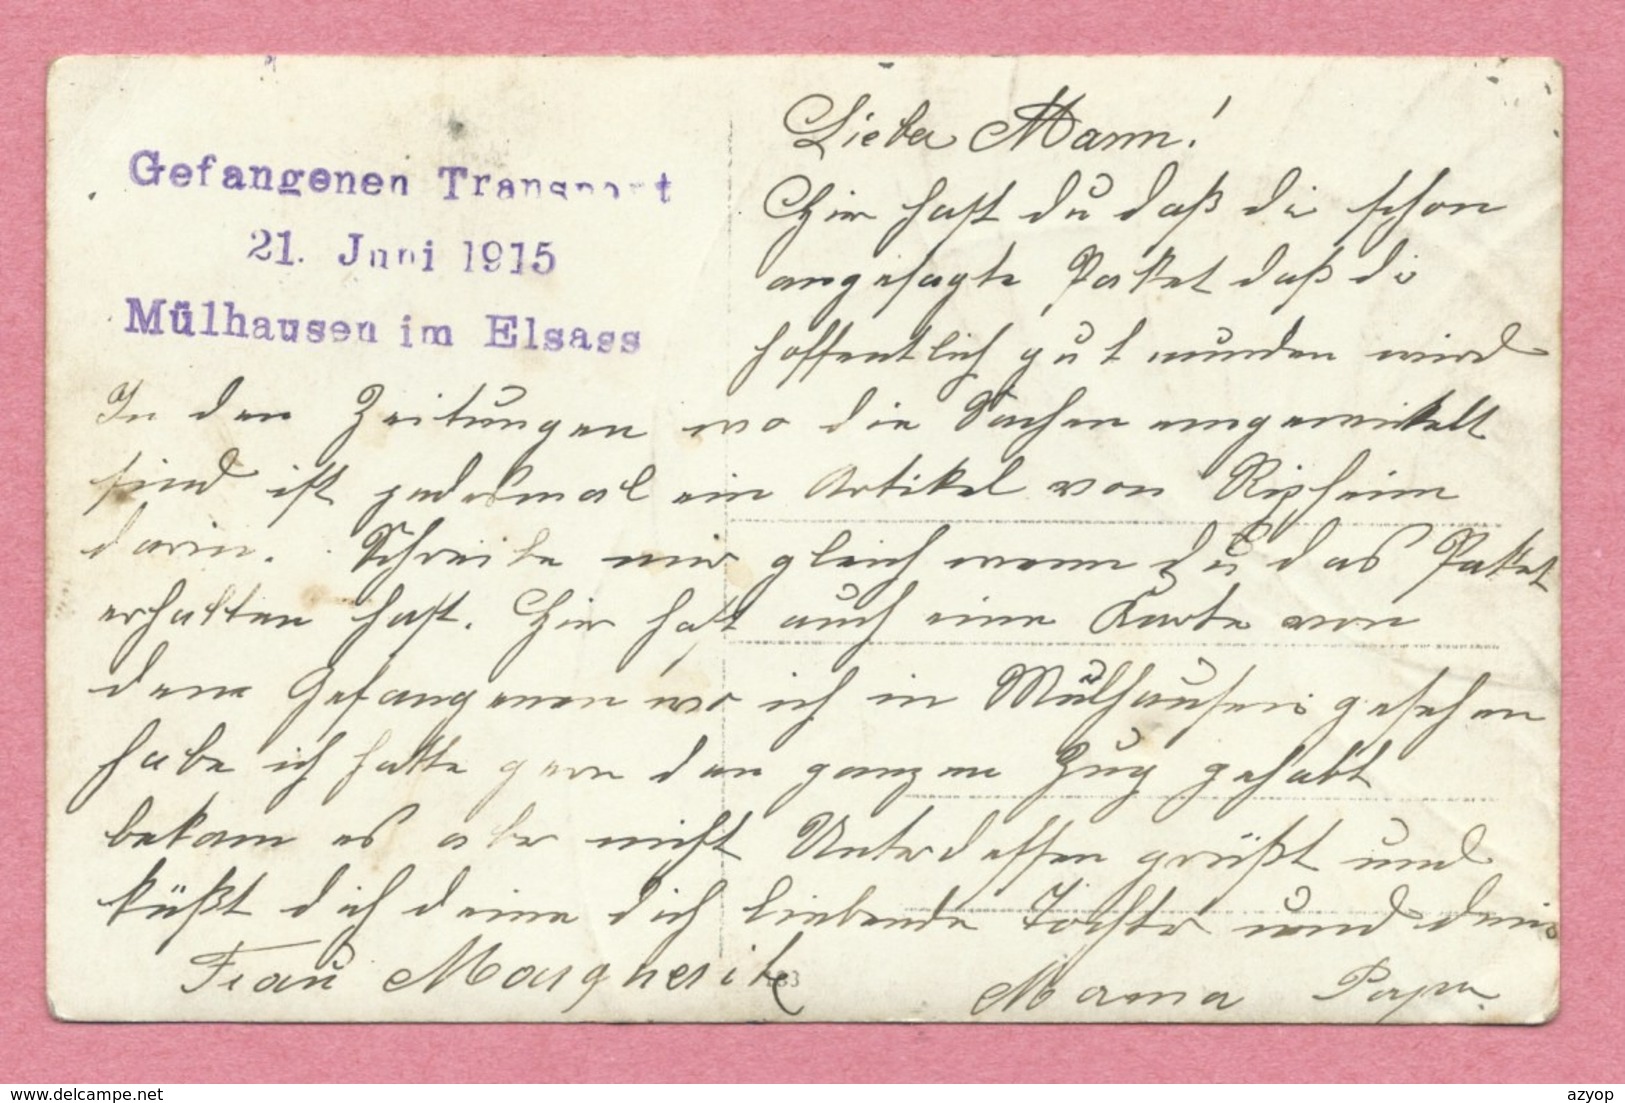 Gefangenen Transport
21. Juni 1915
Mülhausen im Elsass
Lieber Mann!
Hier hast du daß di schon
angesagte Paket daß di
hoffentlich gut munden wird
In den Zeitungen wo die Sachen eingewickelt
sind ist jedesmal ein Artikel von Rixheim
darin. Schreibe mir gleich wenn du das Paket
erhalten hast. Hier hast auch eine Karte von
dem Gefangenen wo ich in Mülhausen gesehen
habe ich hatte gern den ganzen Zug gehabt
bekam es aber nicht Unterdessen grüßt und
küßt dich deine dich liebende Tochter und dein
Frau Marguerite Mama Papa.
azyop